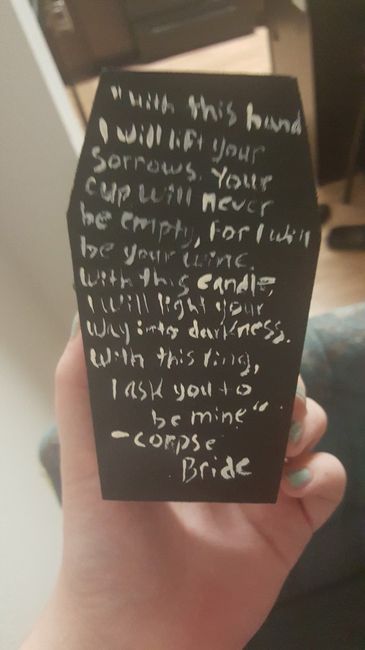 "With this hand
I will lift your
sorrows. Your
cup will never
be empty, for I will
be your wine.
With this candle,
I will light your
way into darkness.
With this ring,
I ask you to
be mine"
-corpse
Bride